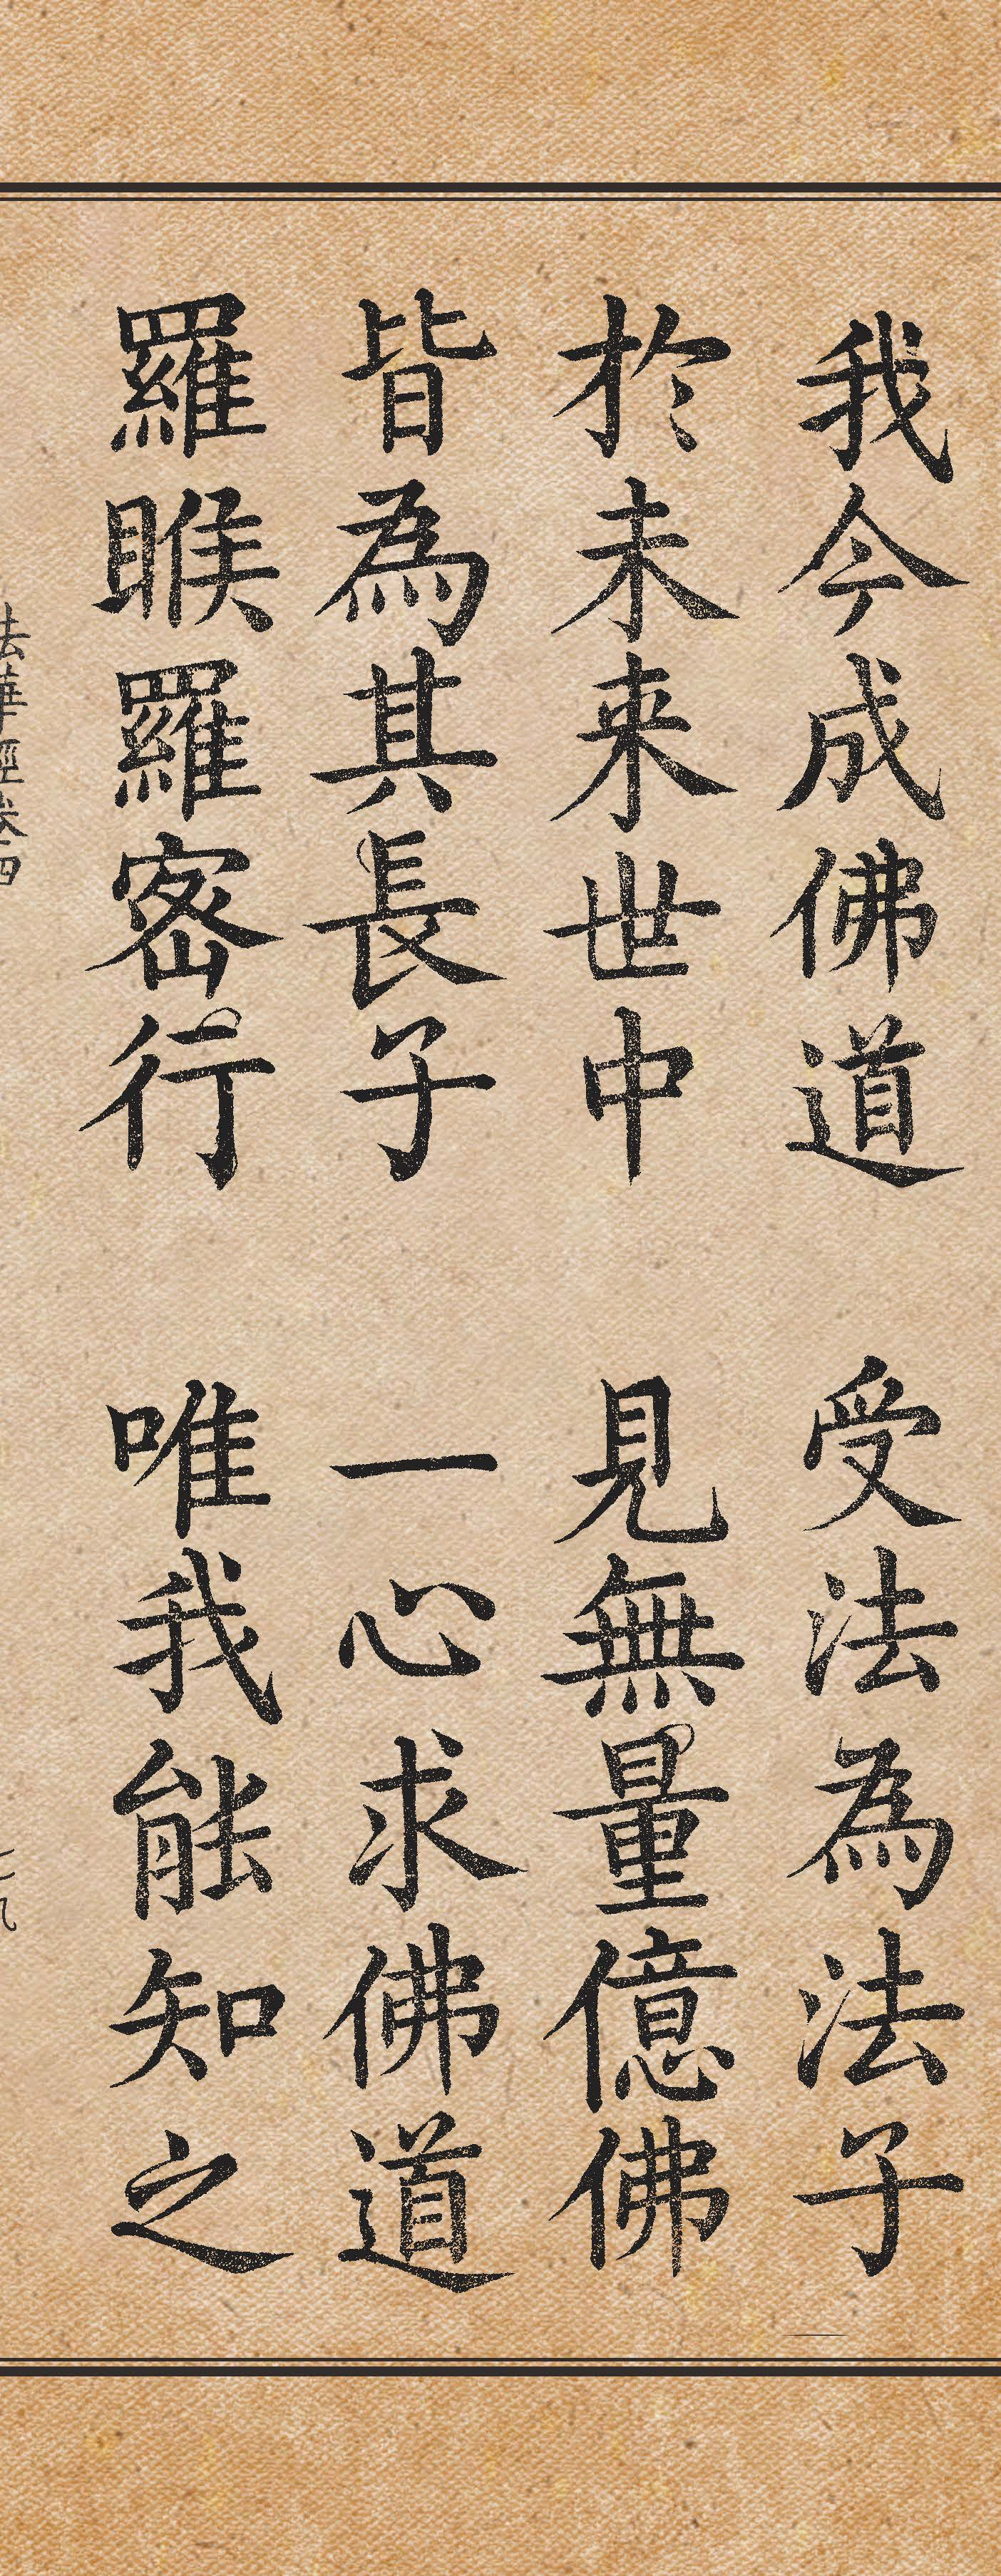 我今成佛道 受法為法子
於未来世中 見無量億佛
皆為其長子 一心求佛道
羅睺羅密行 唯我能知之
法華經卷四